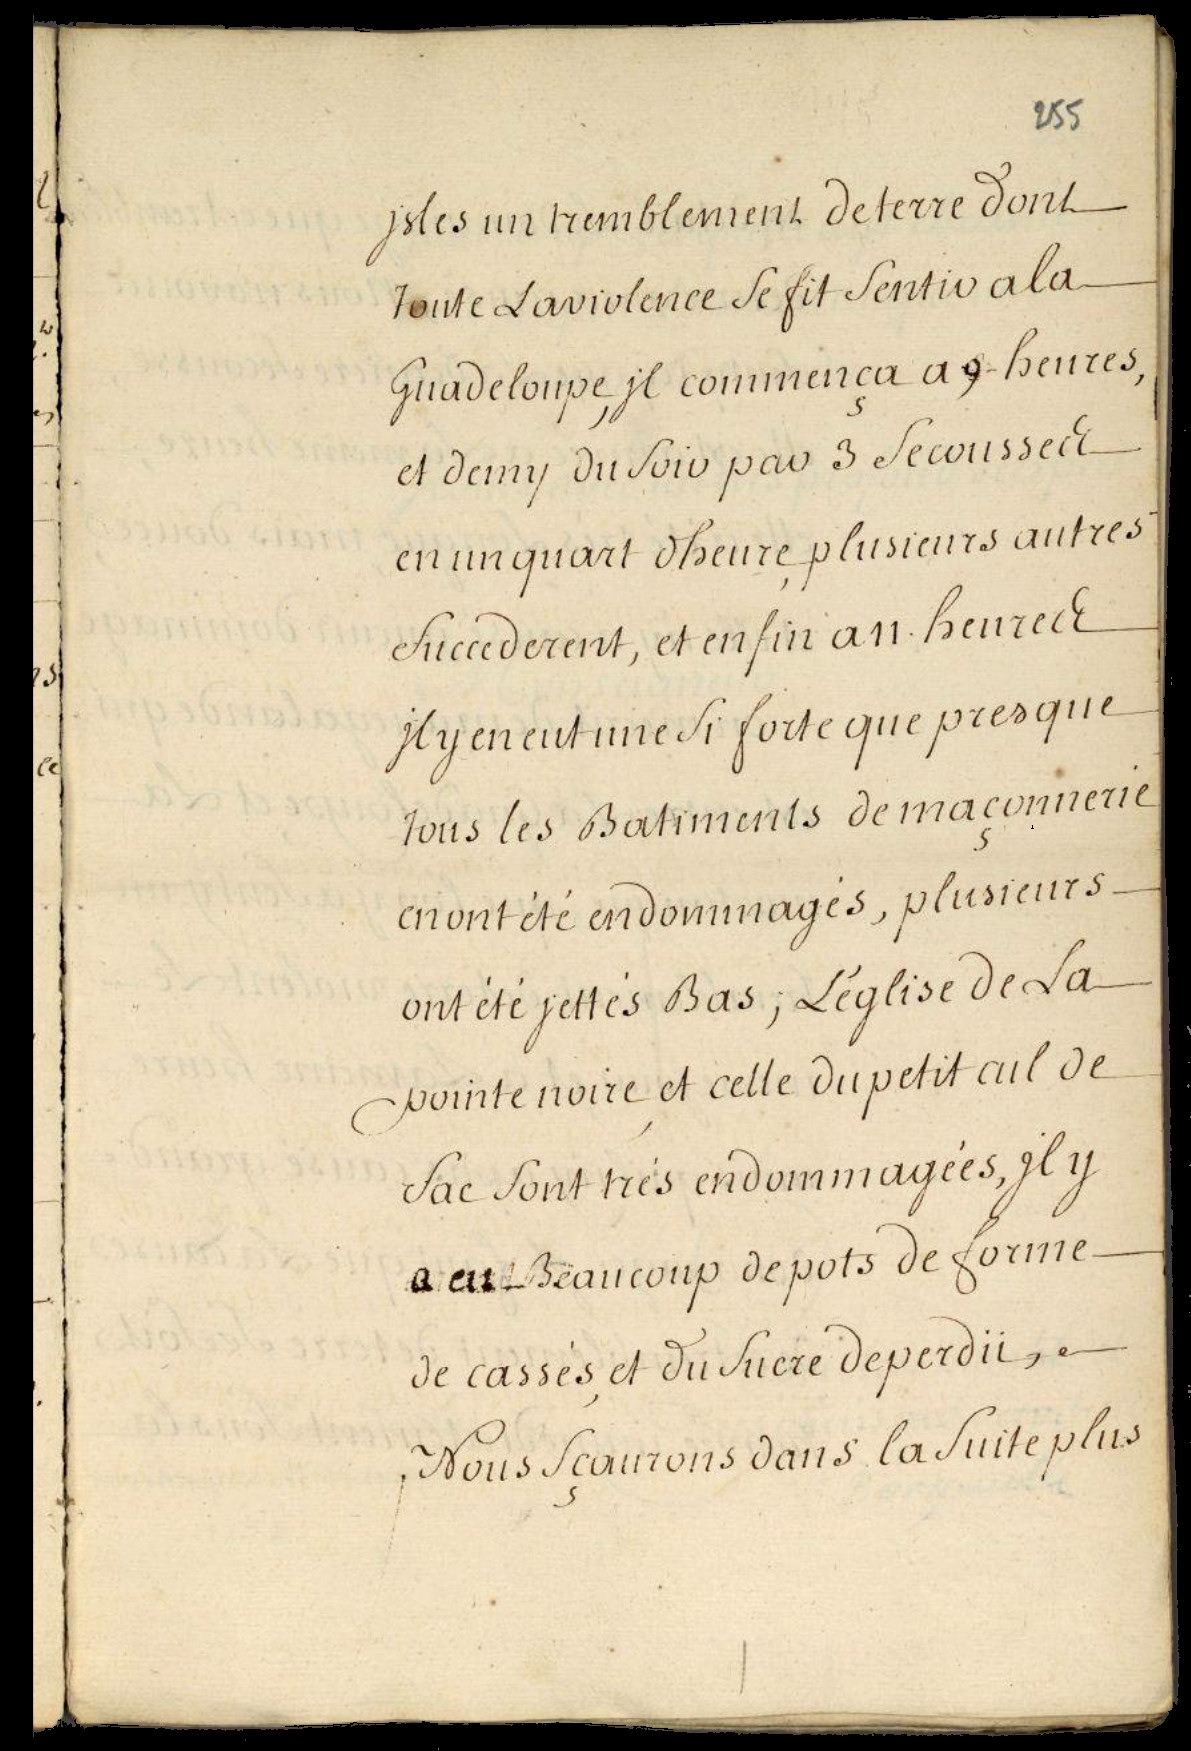 255
jsles un tremblement de terre dont
toute La violence Se fit Sentir a la
Guadeloupe, jl commença a 9 heures,
et demy du Soir par 3 Secousses
en un quart dheure, plusieurs autres
Succederent, et enfin a 11. heures
jl y en eut une Si forte que presque
tous les Batiments de maçonnerie
en ont été endommagés, plusieurs
ont été jettés Bas; L'église de La
pointe noire, et celle du petit cul de
Sac Sont trés endommagées, jl y
a eu Beaucoup de pots de forme
de cassés, et du Sucre de perdü,
Nous Sçaurons dans la Suite plus